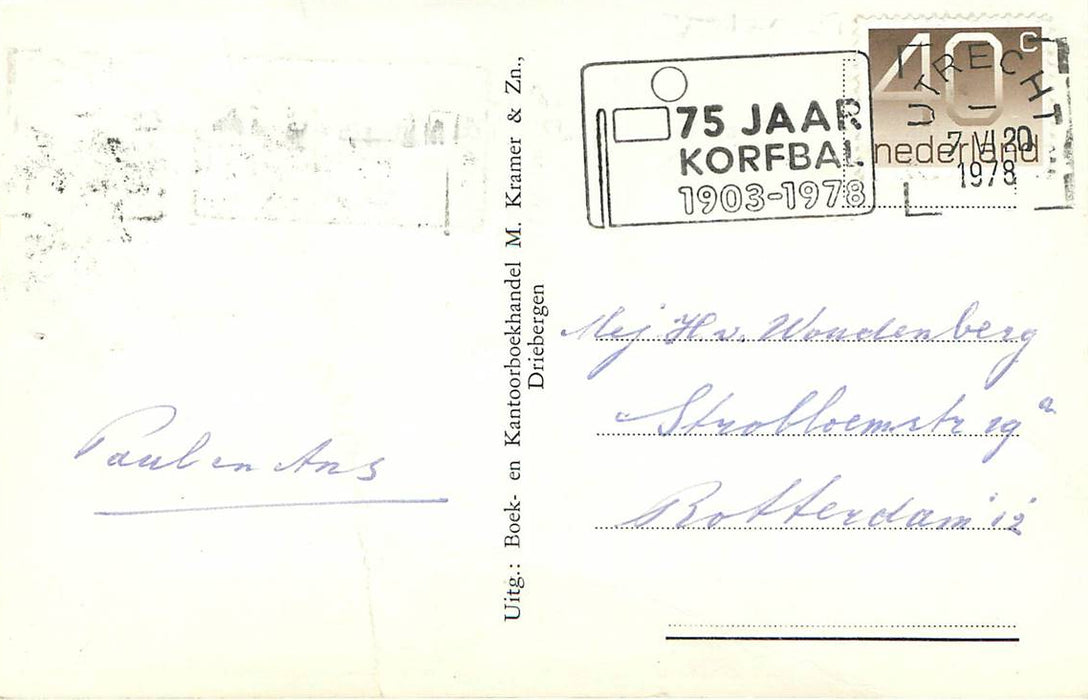 75 JAAR
KORFBAL
1903-1978
40 c
nederland
UTRECHT
7 VI 20
1978
Uitg.: Boek- en Kantoorboekhandel M. Kramer & Zn.,
Driebergen
Mej H v. Woudenberg
Strobloemstr 19a
Rotterdam 12
Paul en Ans